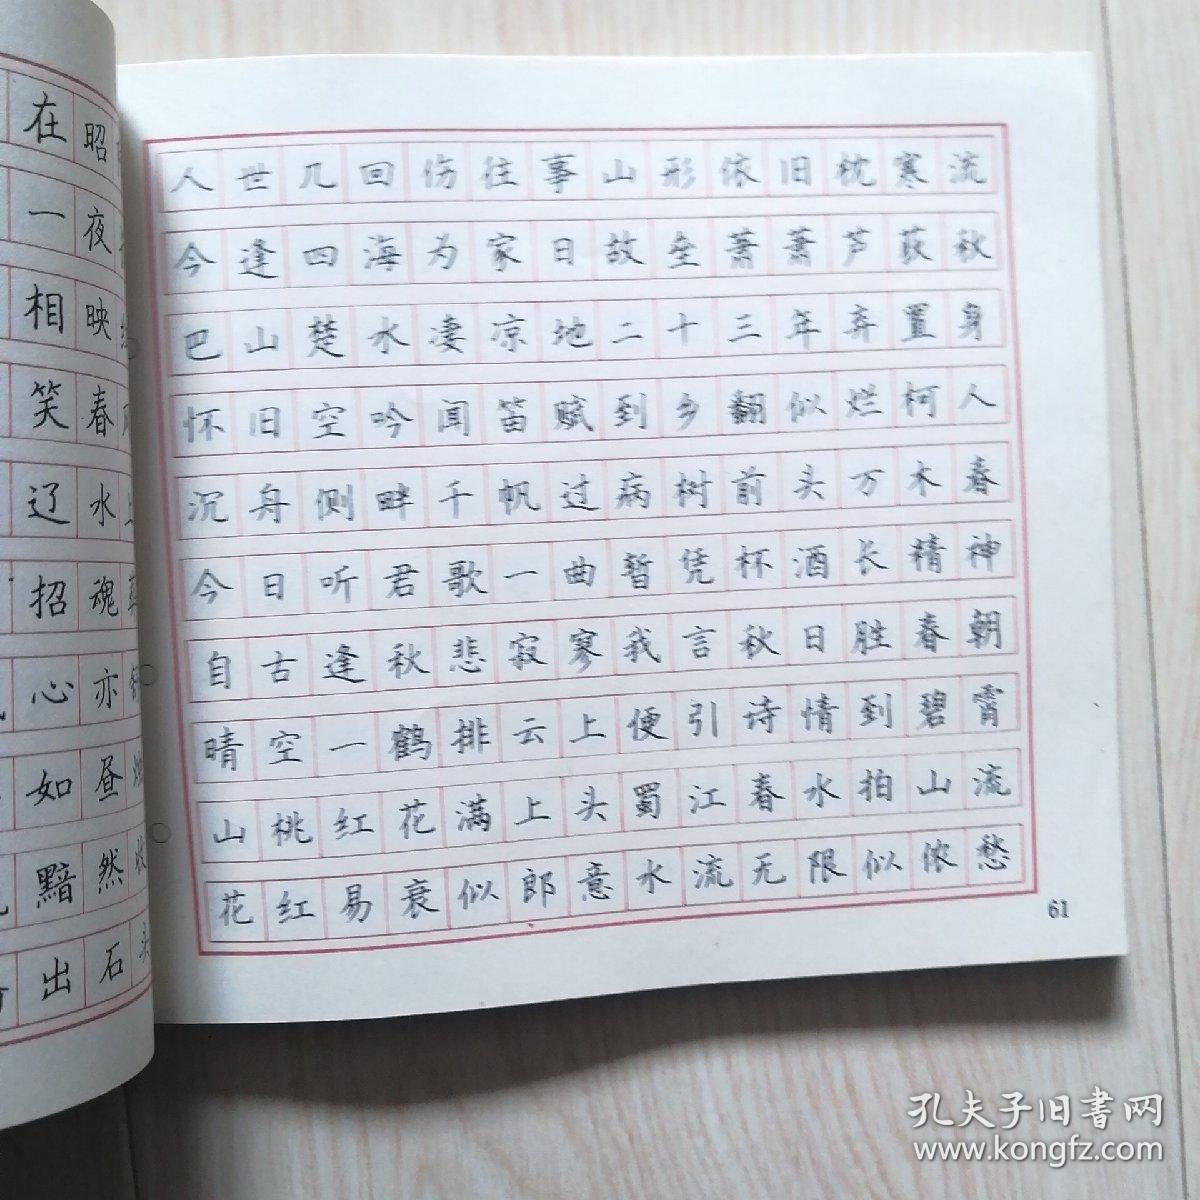 在昭
一夜
相映
笑春
辽水
招魂
心亦
如昼
黯然
出石
人世几回伤往事山形依旧枕寒流
今逢四海为家日故垒萧萧芦荻秋
巴山楚水凄凉地二十三年弃置身
怀旧空吟闻笛赋到乡翻似烂柯人
沉舟侧畔千帆过病树前头万木春
今日听君歌一曲暂凭杯酒长精神
自古逢秋悲寂寥我言秋日胜春朝
晴空一鹤排云上便引诗情到碧霄
山桃红花满上头蜀江春水拍山流
花红易衰似郎意水流无限似侬愁
61
孔夫子旧书网
www.kongfz.com